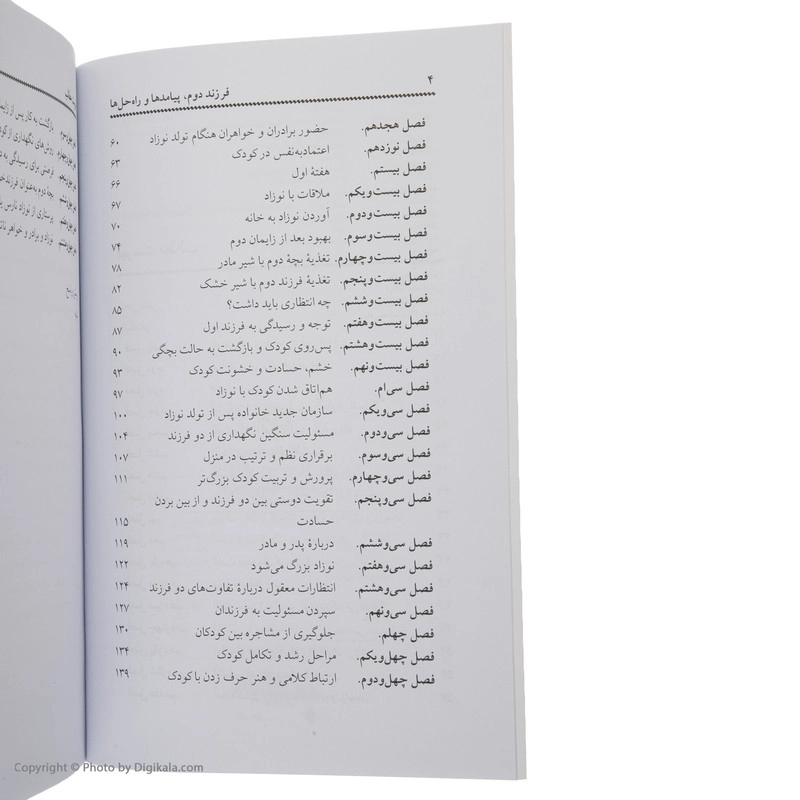 ۴
فرزند دوم، پیامدها و راه‌حل‌ها
فصل هجدهم. حضور برادران و خواهران هنگام تولد نوزاد ۶۰
فصل نوزدهم. اعتمادبه‌نفس در کودک ۶۳
فصل بیستم. هفتهٔ اول ۶۶
فصل بیست‌ویکم. ملاقات با نوزاد ۶۷
فصل بیست‌ودوم. آوردن نوزاد به خانه ۷۰
فصل بیست‌وسوم. بهبود بعد از زایمان دوم ۷۴
فصل بیست‌وچهارم. تغذیهٔ بچهٔ دوم با شیر مادر ۷۸
فصل بیست‌وپنجم. تغذیهٔ فرزند دوم با شیر خشک ۸۲
فصل بیست‌وششم. چه انتظاری باید داشت؟ ۸۵
فصل بیست‌وهفتم. توجه و رسیدگی به فرزند اول ۸۷
فصل بیست‌وهشتم. پس‌روی کودک و بازگشت به حالت بچگی ۹۰
فصل بیست‌ونهم. خشم، حسادت و خشونت کودک ۹۳
فصل سی‌ام. هم‌اتاق شدن کودک با نوزاد ۹۷
فصل سی‌ویکم. سازمان جدید خانواده پس از تولد نوزاد ۱۰۰
فصل سی‌ودوم. مسئولیت سنگین نگهداری از دو فرزند ۱۰۴
فصل سی‌وسوم. برقراری نظم و ترتیب در منزل ۱۰۷
فصل سی‌وچهارم. پرورش و تربیت کودک بزرگ‌تر ۱۱۱
فصل سی‌وپنجم. تقویت دوستی بین دو فرزند و از بین بردن
حسادت ۱۱۵
فصل سی‌وششم. دربارهٔ پدر و مادر ۱۱۹
فصل سی‌وهفتم. نوزاد بزرگ می‌شود ۱۲۲
فصل سی‌وهشتم. انتظارات معقول دربارهٔ تفاوت‌های دو فرزند ۱۲۴
فصل سی‌ونهم. سپردن مسئولیت به فرزندان ۱۲۷
فصل چهلم. جلوگیری از مشاجره بین کودکان ۱۳۰
فصل چهل‌ویکم. مراحل رشد و تکامل کودک ۱۳۴
فصل چهل‌ودوم. ارتباط کلامی و هنر حرف زدن با کودک ۱۳۹
بازگشت به کار پس از زایمان
روش‌های نگهداری از
فرصتی برای رسیدگی به
بچهٔ دوم به‌عنوان
پرستاری از نوزاد نارس
نوزاد و برادر و خواهر
Copyright © Photo by Digikala.com